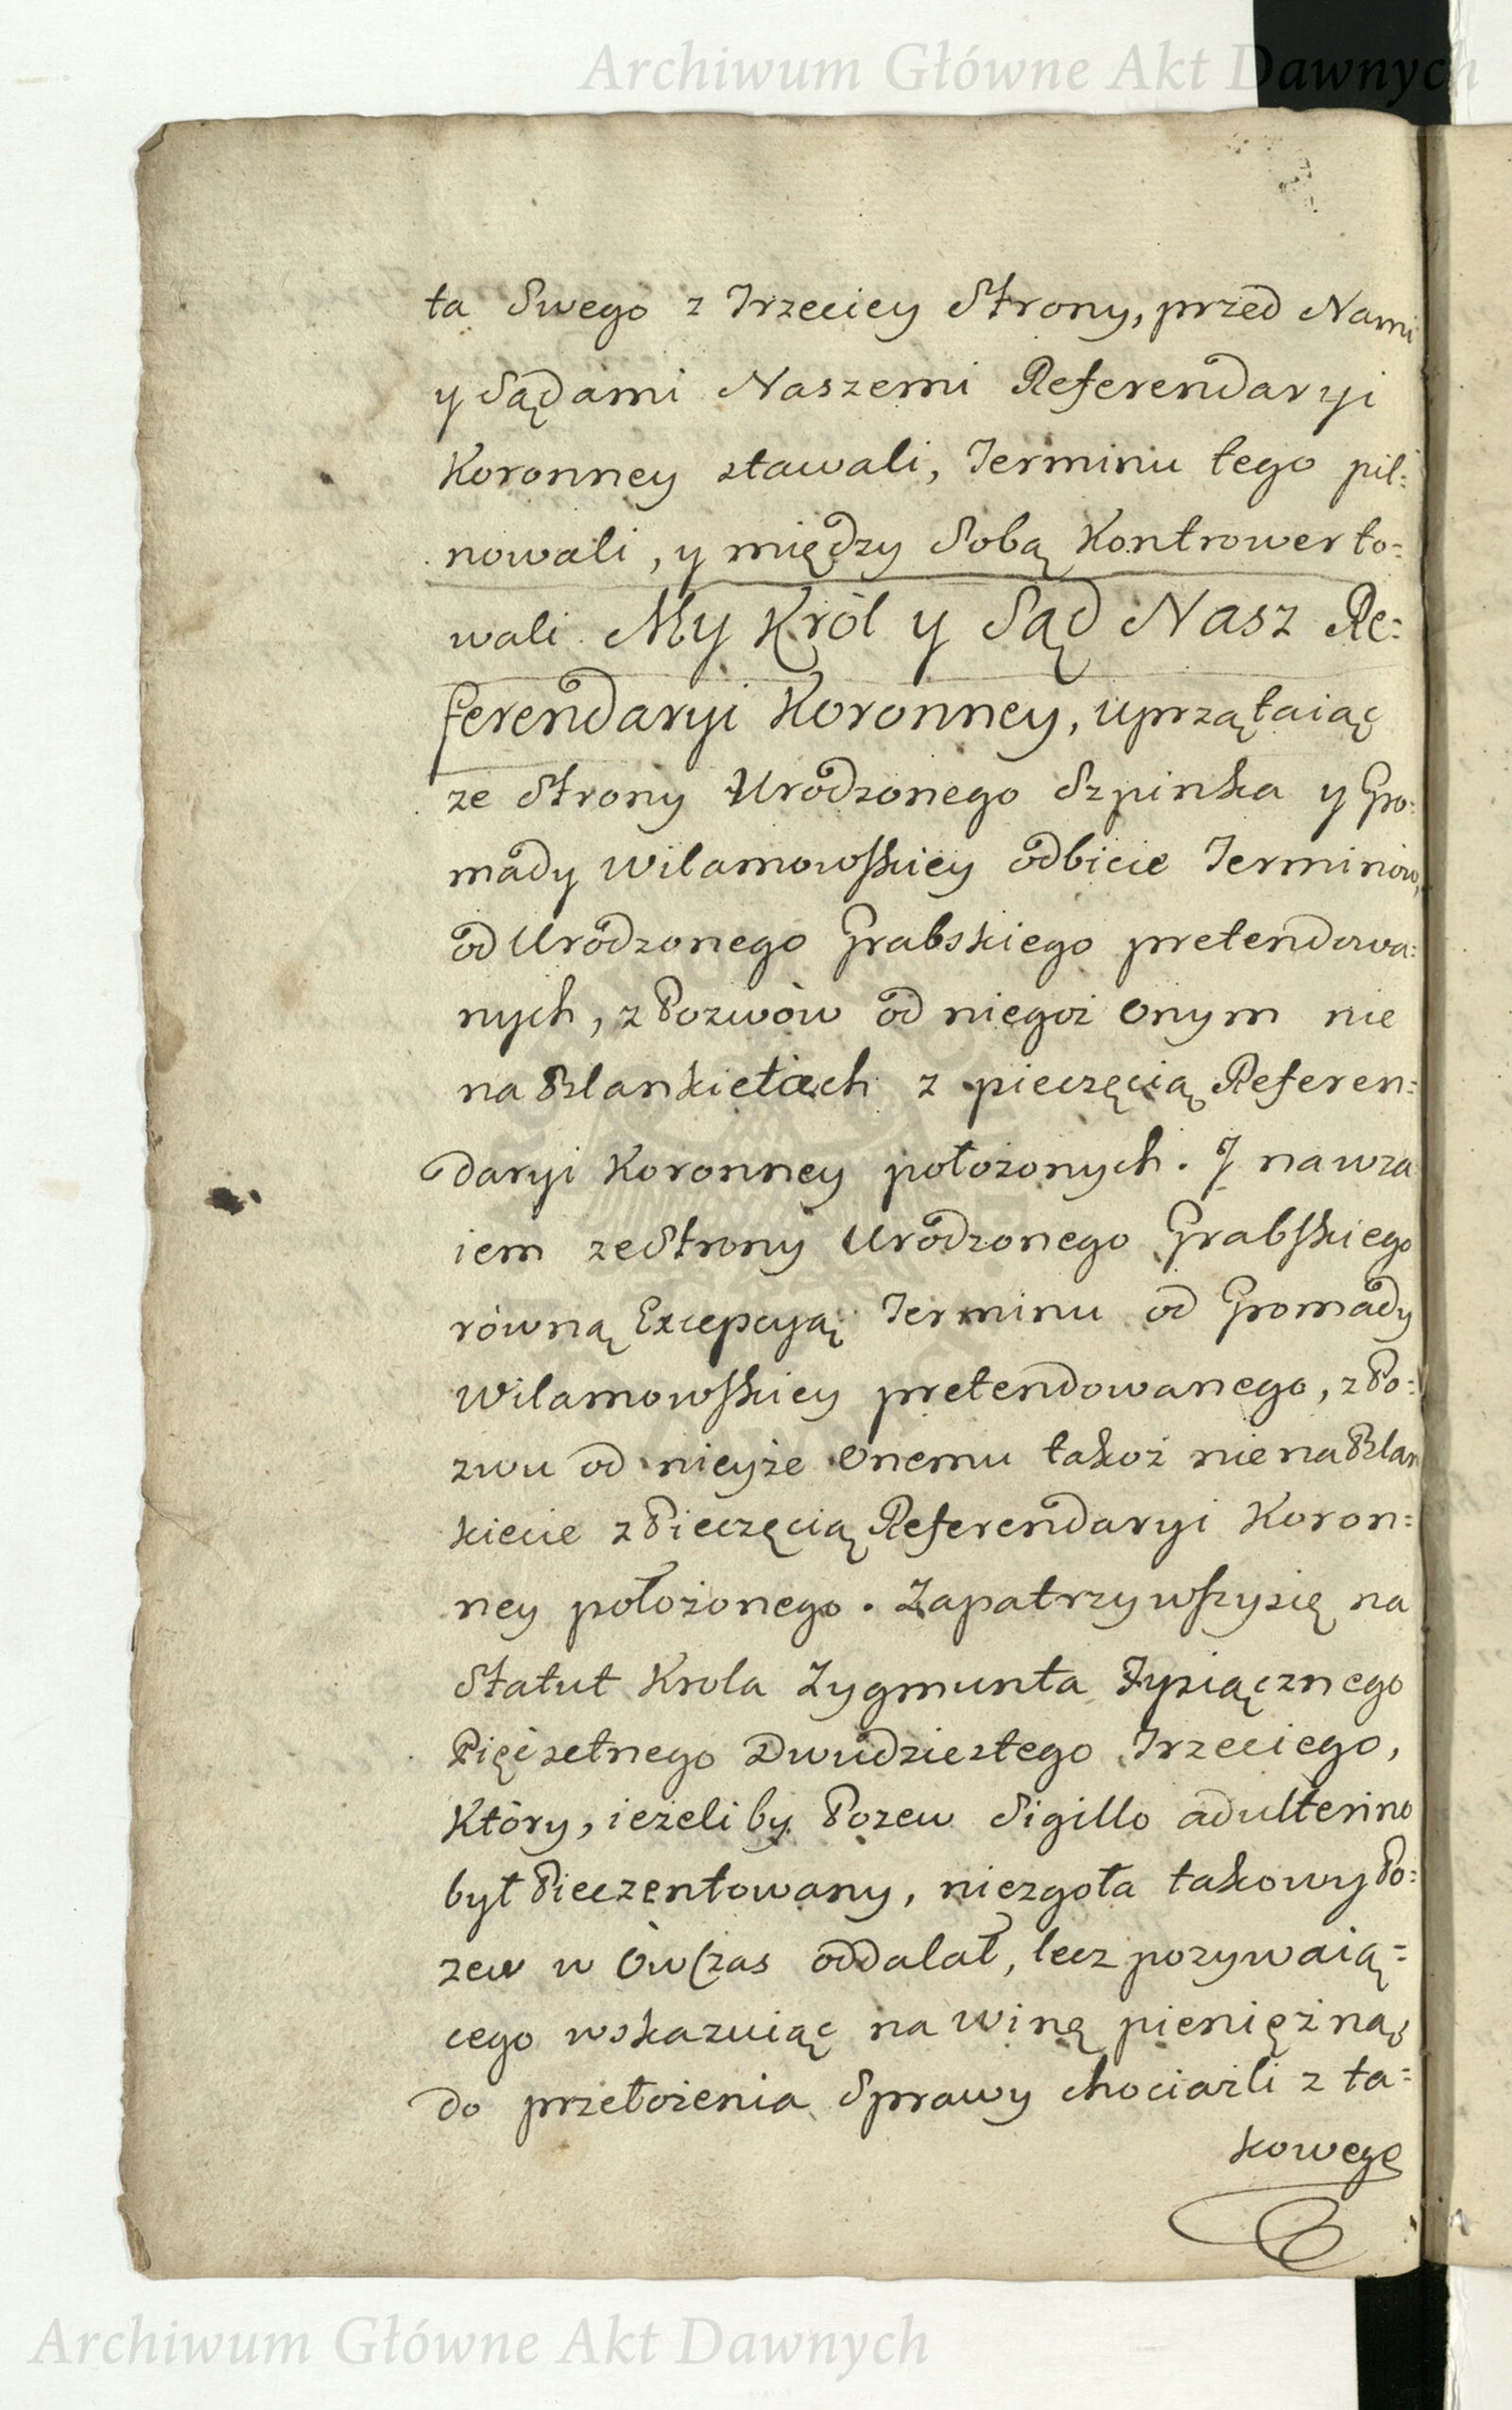 Archiwum Główne Akt Dawnych
ta Swego z Trzeciey Strony, przed Nami
y Sądami Naszemi Referendaryi
Koronney stawali, Terminu tego pil:
nowali, y między Sobą Kontrowerto:
wali. My Król y Sąd Nasz Re:
ferendaryi Koronney, uprzątaiąc
ze Strony Urodzonego Szpinka y Gro:
mady Wilamowskiey odbicie Terminów,
od Urodzonego Grabskiego pretendowa:
nych, z Pozwów od niegoż onym nie
na Blankietach z pieczęcią Referen:
daryi Koronney położonych. J nawza
iem ze Strony Urodzonego Grabskiego
równą Excepcyią Terminu od Gromady
Wilamowskiey pretendowanego, z Po:
zwu od nieyże onemu takoż nie na Blan
kiecie z Pieczęcią Referendaryi Koron:
ney położonego. Zapatrzywszy się na
Statut Krola Zygmunta Tysiącznego
Pięćsetnego Dwudziestego Trzeciego,
Który, ieżeliby Pozew Sigillo adulterino
był Pieczentowany, niezgoła takowy Po:
zew w ówczas oddalał, lecz pozywaią:
cego wskazuiąc na winę pieniężną,
do przełożenia Sprawy chociażli z ta:
kowego
Archiwum Główne Akt Dawnych